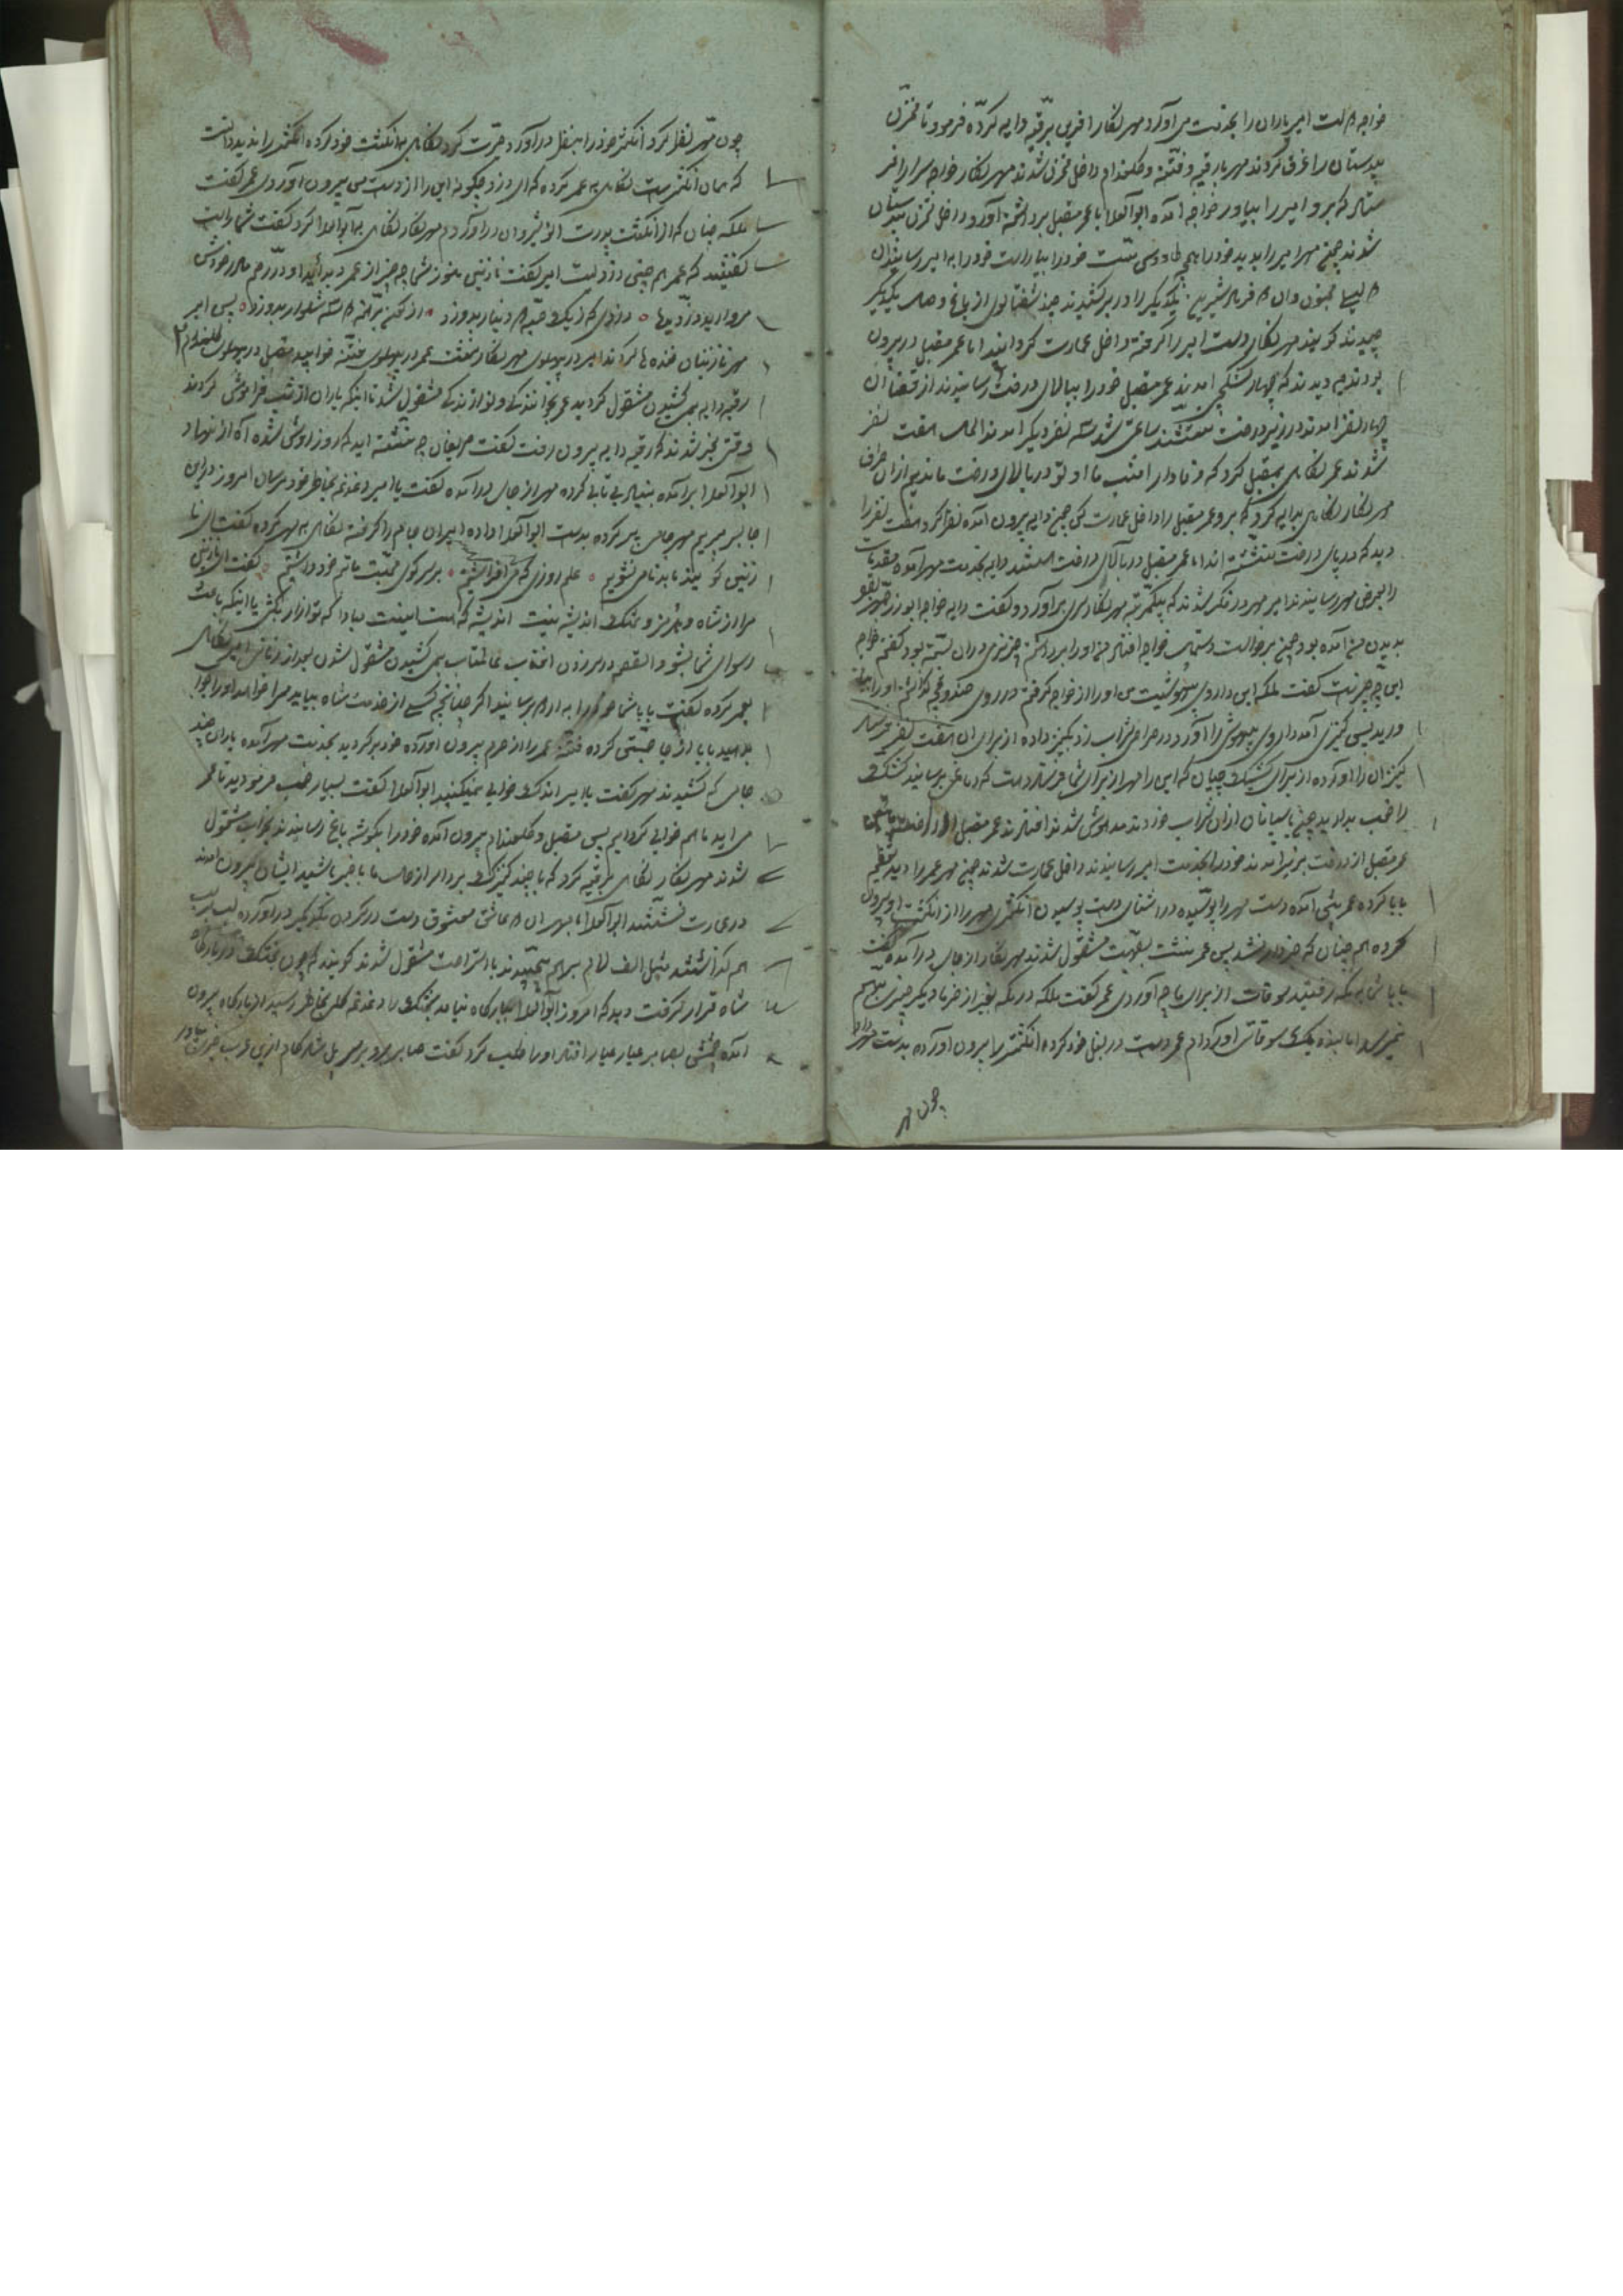 خواجه امیر یاران را بخدمت می آورد مهر نکار آفرین برقیه دایه کرده فرمود تا مخزن
بدستان را غرق کردند مهر با رقیه و فتنه و کلندام داخل مخزن شدند مهر نکار خواجه سرا را
که برو امیر را بیاور خواجه آمده ابوالعلا با عمر مقبل برداشته آورد داخل مخزن
شدند چون مهر امیر را بدید خود را همچو طاوسی مست خود را بیاراست خود را به امیر رسانیدن
لیلی مجنون و آن فرهاد شیرین یکدیکر را در بر کشیدند چند شفتالوی از باغ وصل یکدیکر
چیدند کویند مهر نکار دست امیر را کرفته داخل عمارت کردانید اما عمر مقبل در بیرون
بودند دیدند که چهار کشکچی امدند عمر مقبل خود را ببالای درخت رسانیدند از قضا آن
چهار نفر امدند در زیر درخت نشستند ساعتی شد سه نفر دیکر امدند الحال هفت نفر
شدند عمر نکاهی بمقبل کرد که وفادار امشب ما و تو در بالای درخت ماندیم از آن طرف
مهر نکار نکاهی بدایه کرد که برو عمر مقبل را داخل عمارت کن چون دایه بیرون آمده نظر کرد هفت نفر را
دید که در پای درخت نشسته اند اما عمر مقبل در بالای درخت هستند دایه بخدمت مهر آمده مقدمات
را بعرض مهر رسانیدند امیر مهر در فکر شدند که یکمرتبه مهر نکار سری برآورد و کفت دایه خواجه ابوزرجمهر
بدیدن من آمده بود چون برخواست دستمال خواجه افتاد من او را برداشتم چیزی در آن بسته بود کفتم خواجه
این چه چیز است کفت ملکه این داروی بیهوشیست من او را از خواجه کرفتم در روی صندوقچه کذاشتم او را بیار
کنیزی آمد داروی بیهوش را آورد در صراحی شراب زد بکنیز داده از برای آن هفت نفر
کنیز آن را آورده از برای کشیکچیان که این را مهر از برای شما فرستاده است که دماغی برسانید کشیک
را خوب بدارید چون پاسبانان از آن شراب خوردند مدهوش شدند افتادند عمر مقبل
عمر مقبل از درخت بزیر امدند خود را بخدمت امیر رسانیدند داخل عمارت شدند چون مهر عمر را دید تعظیم
بابا کرده عمر پیش آمده دست مهر را بوسیده در اثنای دست بوسیدن انکشتر مهر را از انکشت او بیرون
کرده هم چنان که خبردار نشد پس عمر نشست بصحبت مشغول شدند مهر نکار از جای درآمده کفت
بابا شما بمکه رفتید سوقات از برای ما چه آوردی عمر کفت ملکه در مکه بغیر از خرما دیکر چیزی بهم
نمیرسد اما بنده یک سوقاتی آورده ام عمر دست در بغل خود کرده انکشتر را بیرون آورده بدست مهر داد
چون مهر
چون مهر نظر کرد انکشتر خود را بنظر درآورد حیرت کرد نکاهی به انکشت خود کرده انکشتر را ندید دانست
که همان انکشتر است نکاهی به عمر کرده که ای دزد چکونه این را از دست من بیرون آوردی عمر کفت
ملکه چنان که از انکشت پدرت انوشیروان درآوردم مهر نکار نکاهی به ابوالعلا کرد کفت شما راست
کفتید که عمر هم چنین دزدیست امیر کفت نازنین هنوز شما چه چیز از عمر دیده اید او در رحم مادر خودش
مروارید دزدیدها ه دزدی که ز یک حبه دینار بدزدد ه از کون برهنه شلوار بدزدد ه پس امیر
مهر نازنینان خنده ها کردند امیر در پهلوی مهر نکار نشست عمر در پهلوی فتنه خوابید مقبل در پهلوی کلندام
رقیه دایه بمی کشیدن مشغول کردید عمر بخوانندکی و نوازندکی مشغول شد تا اینکه یاران از شب فراموش کردند
وقتی خبر شدند که رقیه دایه بیرون رفت کفت حریفان چه نشسته اید که روز روشن شده آه از نهاد
ابوالعلا برآمده بنیاد بی تابی کرده مهر از جای درآمده کفت یا امیر دغدغه بخاطر خود مرسان امروز در این
جا بسر بریم مهر جامی پر کرده بدست ابوالعلا داده امیران جام را کرفته نکاهی به مهر کرده کفت ای نا
زنین کو بیا تا بدنام نشویم ه علم روزی که می افراشتم ه بر سر کوی محبت ماتم خود داشتم ه کفت ای نازنین
مرا از شاه و هرمز و بختک اندیشه نیست اندیشه که هست اینست مبادا که تو آزار بکشی یا اینکه باعث
رسوای شما بشود القصه در بر زدن آفتاب عالمتاب بمی کشیدن مشغول شدن بعد از زمانی امیر نکاهی
بعمر کرده کفت بابا شما خود را به اردو برسانید اکر چنانچه کسی از خدمت شاه بیاید مرا خواهد او را جواب
بدهید بابا از جا جستی کرده فتنه عمر را از حرم بیرون آورده خود برکردید بخدمت مهر آمده یاران چند
جامی که کشیدند مهر کفت یا امیر اندک خوابی نمیکنید ابوالعلا کفت بسیار خوب فرمودید تا عمر
می اید ما هم خوابی کرده ایم پس مقبل و کلندام بیرون آمده خود را بکوشه باغ رسانیدند بخواب مشغول
شدند مهر نکار نکاهی برقیه کرد که با چند کنیزک بردار از حال ما با خبر باشید ایشان بیرون امدند
در عمارت نشستند ابوالعلا با مهر آن عاشق معشوق دست در کردن یکدیکر درآورده لب بر لب
هم کذاشتند مثل الف لام بر هم پیچیدند باستراحت مشغول شدند کویند که چون بختک در بارکاه
شاه قرار کرفت دید که امروز ابوالعلا ببارکاه نیامد بختک را دغدغه کلی بخاطر رسید از بارکاه بیرون
آمده چشمش بصابر عیار افتاد او را طلب کرد کفت صابر برو بر سر پل شاد کام ازین عرب خبری بیاور